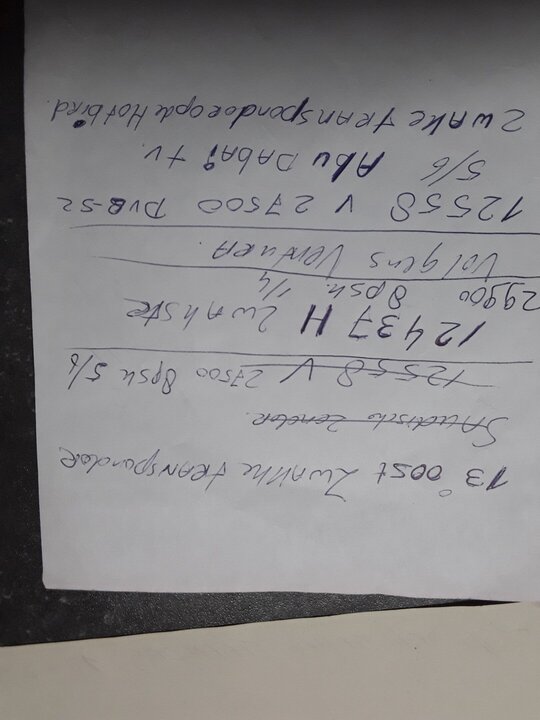 13° oost Zwakke transpondor
Saudisch zender.
12558 V 27500 8psk 5/6
12437 H Zwakste
29900 8psk. 1/4
Volgens Ventura.
12558 V 27500 DVB-S2
5/6 Abu Dabai tv.
Zwakke transpondor op de Hotbird.